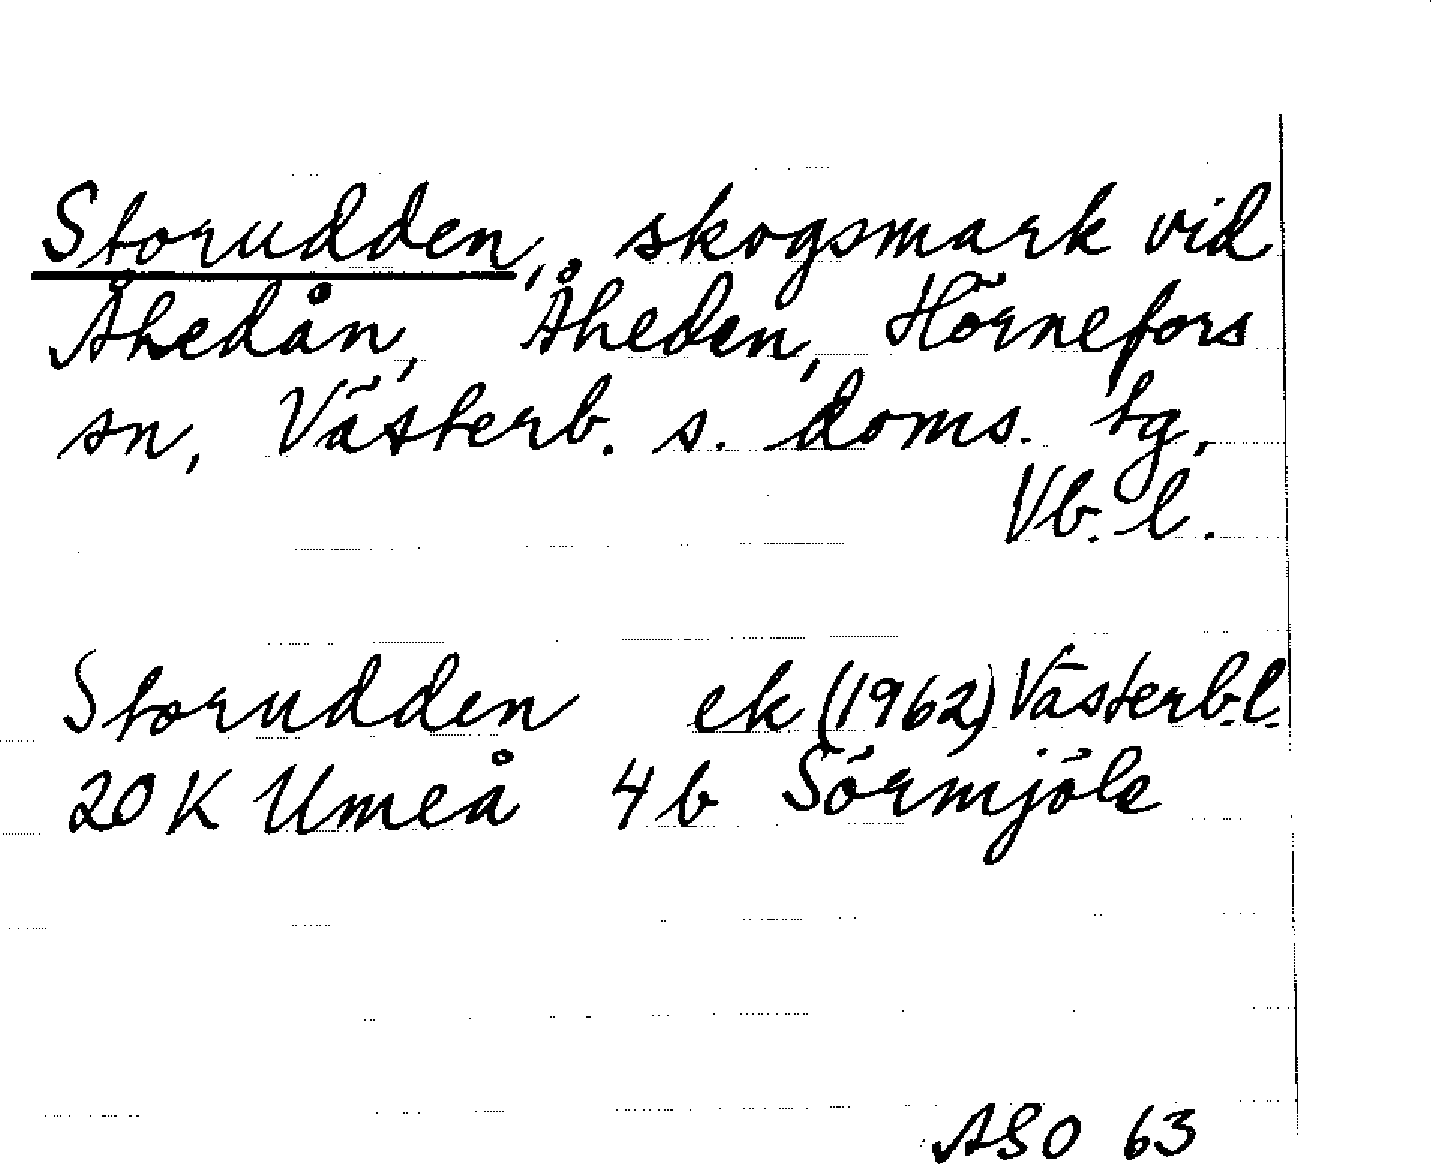 Storudden, skogsmark vid
Åhedån, Åheden, Hörnefors
sn, Västerb. s. doms. tg,
Vb. l.
Storudden ek (1962) Västerb. l.
20 K Umeå 4 b Sörmjöle
ASO 63